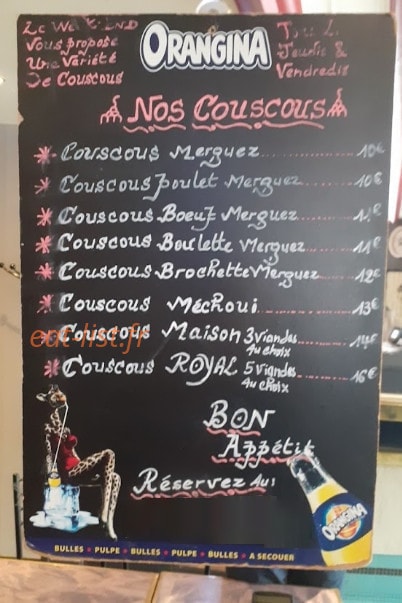 Le Week-End
Vous propose
Une Variété
De Couscous
ORANGINA
Jeudis &
Vendredis
Nos Couscous
Couscous Merguez 10€
Couscous poulet Merguez 10€
Couscous Boeuf Merguez 11€
Couscous Boulette Merguez 11€
Couscous Brochette Merguez 12€
Couscous Méchoui 13€
Couscous Maison 3 viandes au choix 14€
eat-list.fr
Couscous ROYAL 5 viandes au choix 16€
BON
Appétit
Réservez Au:
ORANGINA
BULLES * PULPE * BULLES * PULPE * BULLES * A SECOUER